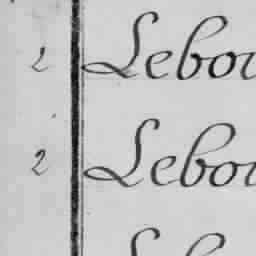 2 Lebou
2 Lebou